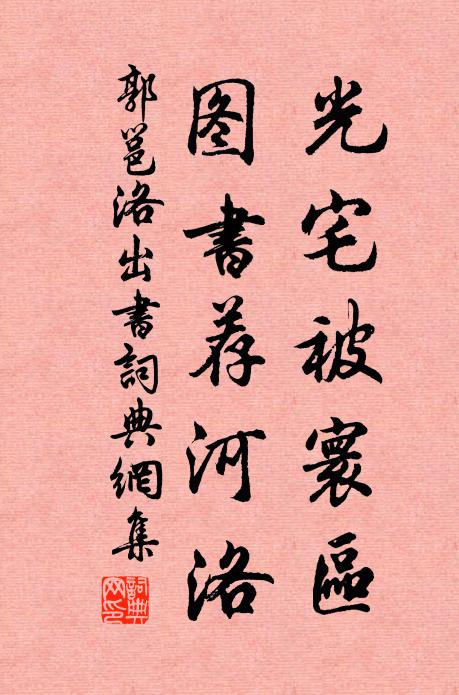 光宅被寰區
图書荐河洛
郭邕洛出書詞典網集
詞典網印